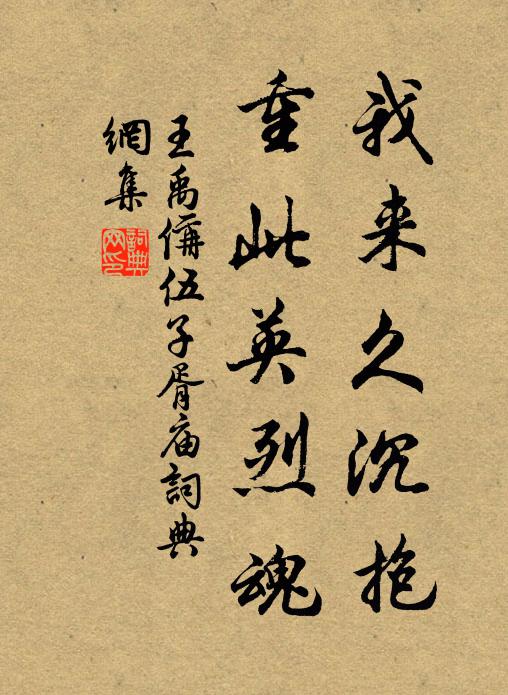 我来久沉抱
重此英烈魂
王禹偁伍子胥庙詞典
網集
詞典
网印